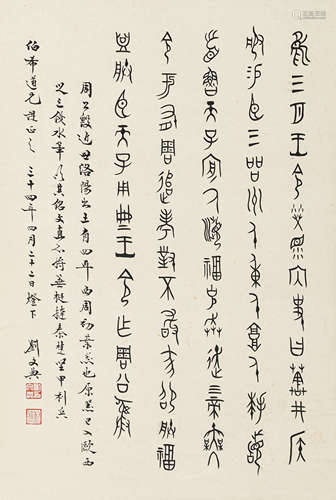 隹三月王令𤇾眔內史曰𦵯井侯
服易臣三品州人東人𩫖人拜䭫
首魯天子氒瀕福克奔走上下帝無冬
令于有周追孝對不敢卲朕福
朕臣天子用典王令乍周公彝
周公𣪘近世洛陽出土有四年西周初葉器也原器已入歐西
其銘文真不特華梃撻秦楚堅甲利兵
伯希道兄正之 三十四年四月二十二日燈下 劉文典